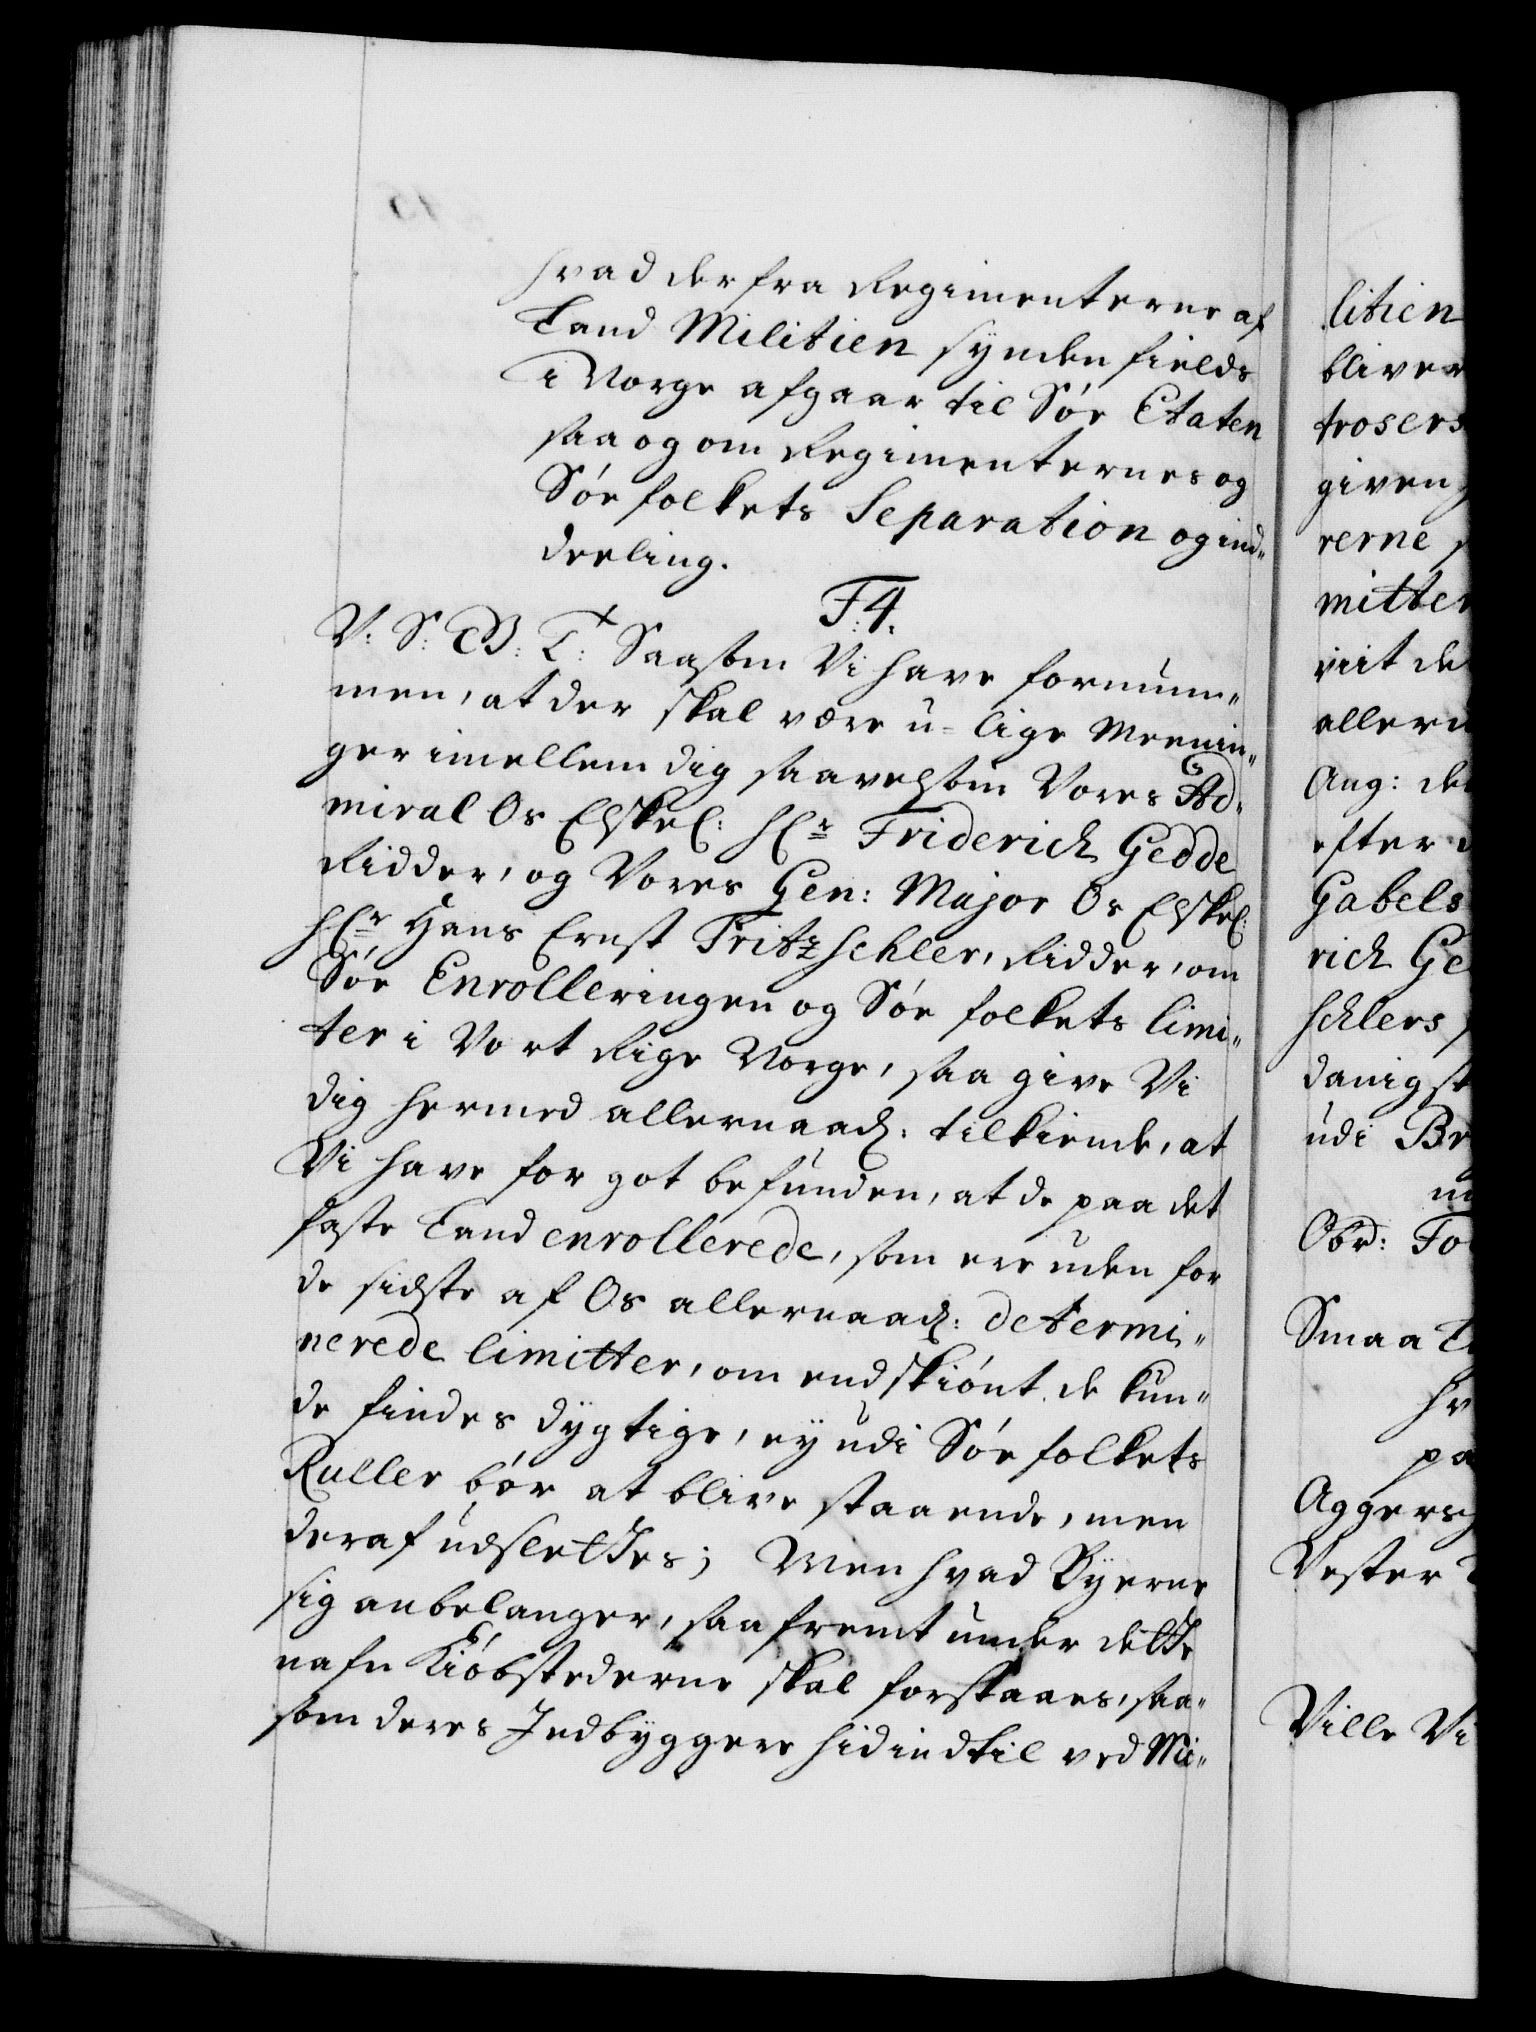 hvad der fra Regimenterne af
Land Militien synden fields
i Norge afgaar til Söe Etaten
saa og om Regimenternes og
Söe folkets Separation og ind„
deeling.
F. 4.
V: S: G: T: Saasom Vi have fornum„
men, at der skal være u-lige Meenin„
ger imellem dig saavelsom Vores Ad„
miral Os Elskel: Hr Friderich Gedde
Ridder, og Vores Gen: Major Os Elskel:
Hr Hans Ernst Tritzschler, Ridder, om
Söe Enrolleringen og Söe folkets limi„
ter i Vort Rige Norge, saa give Vi
dig hermed allernaad: tilkiende, at
Vi have for got befunden, at de paa det
faste Land enrollerede, som ere uden for
de sidste af Os allernaad: determi„
nerede limitter, om endskiönt de kun„
de findes dygtige, ey udi Söe folkets
Ruller bör at blive staaende, men
deraf udslettes; Men hvad Byerne
sig anbelanger, saafremt under dette
nafn Kiöbstederne skal forstaaes, saa„
som deres Indbyggere hidindtil ved Mi„
litien
bliver
trosers
given
rerne
mitter
viit de
allern
Aug: de
efter
Gabels
rich Ge
schlers
danigst
udi Br
Obr: Fo
Smaa
hv
pa
Aggers
Vester
Ville Vi